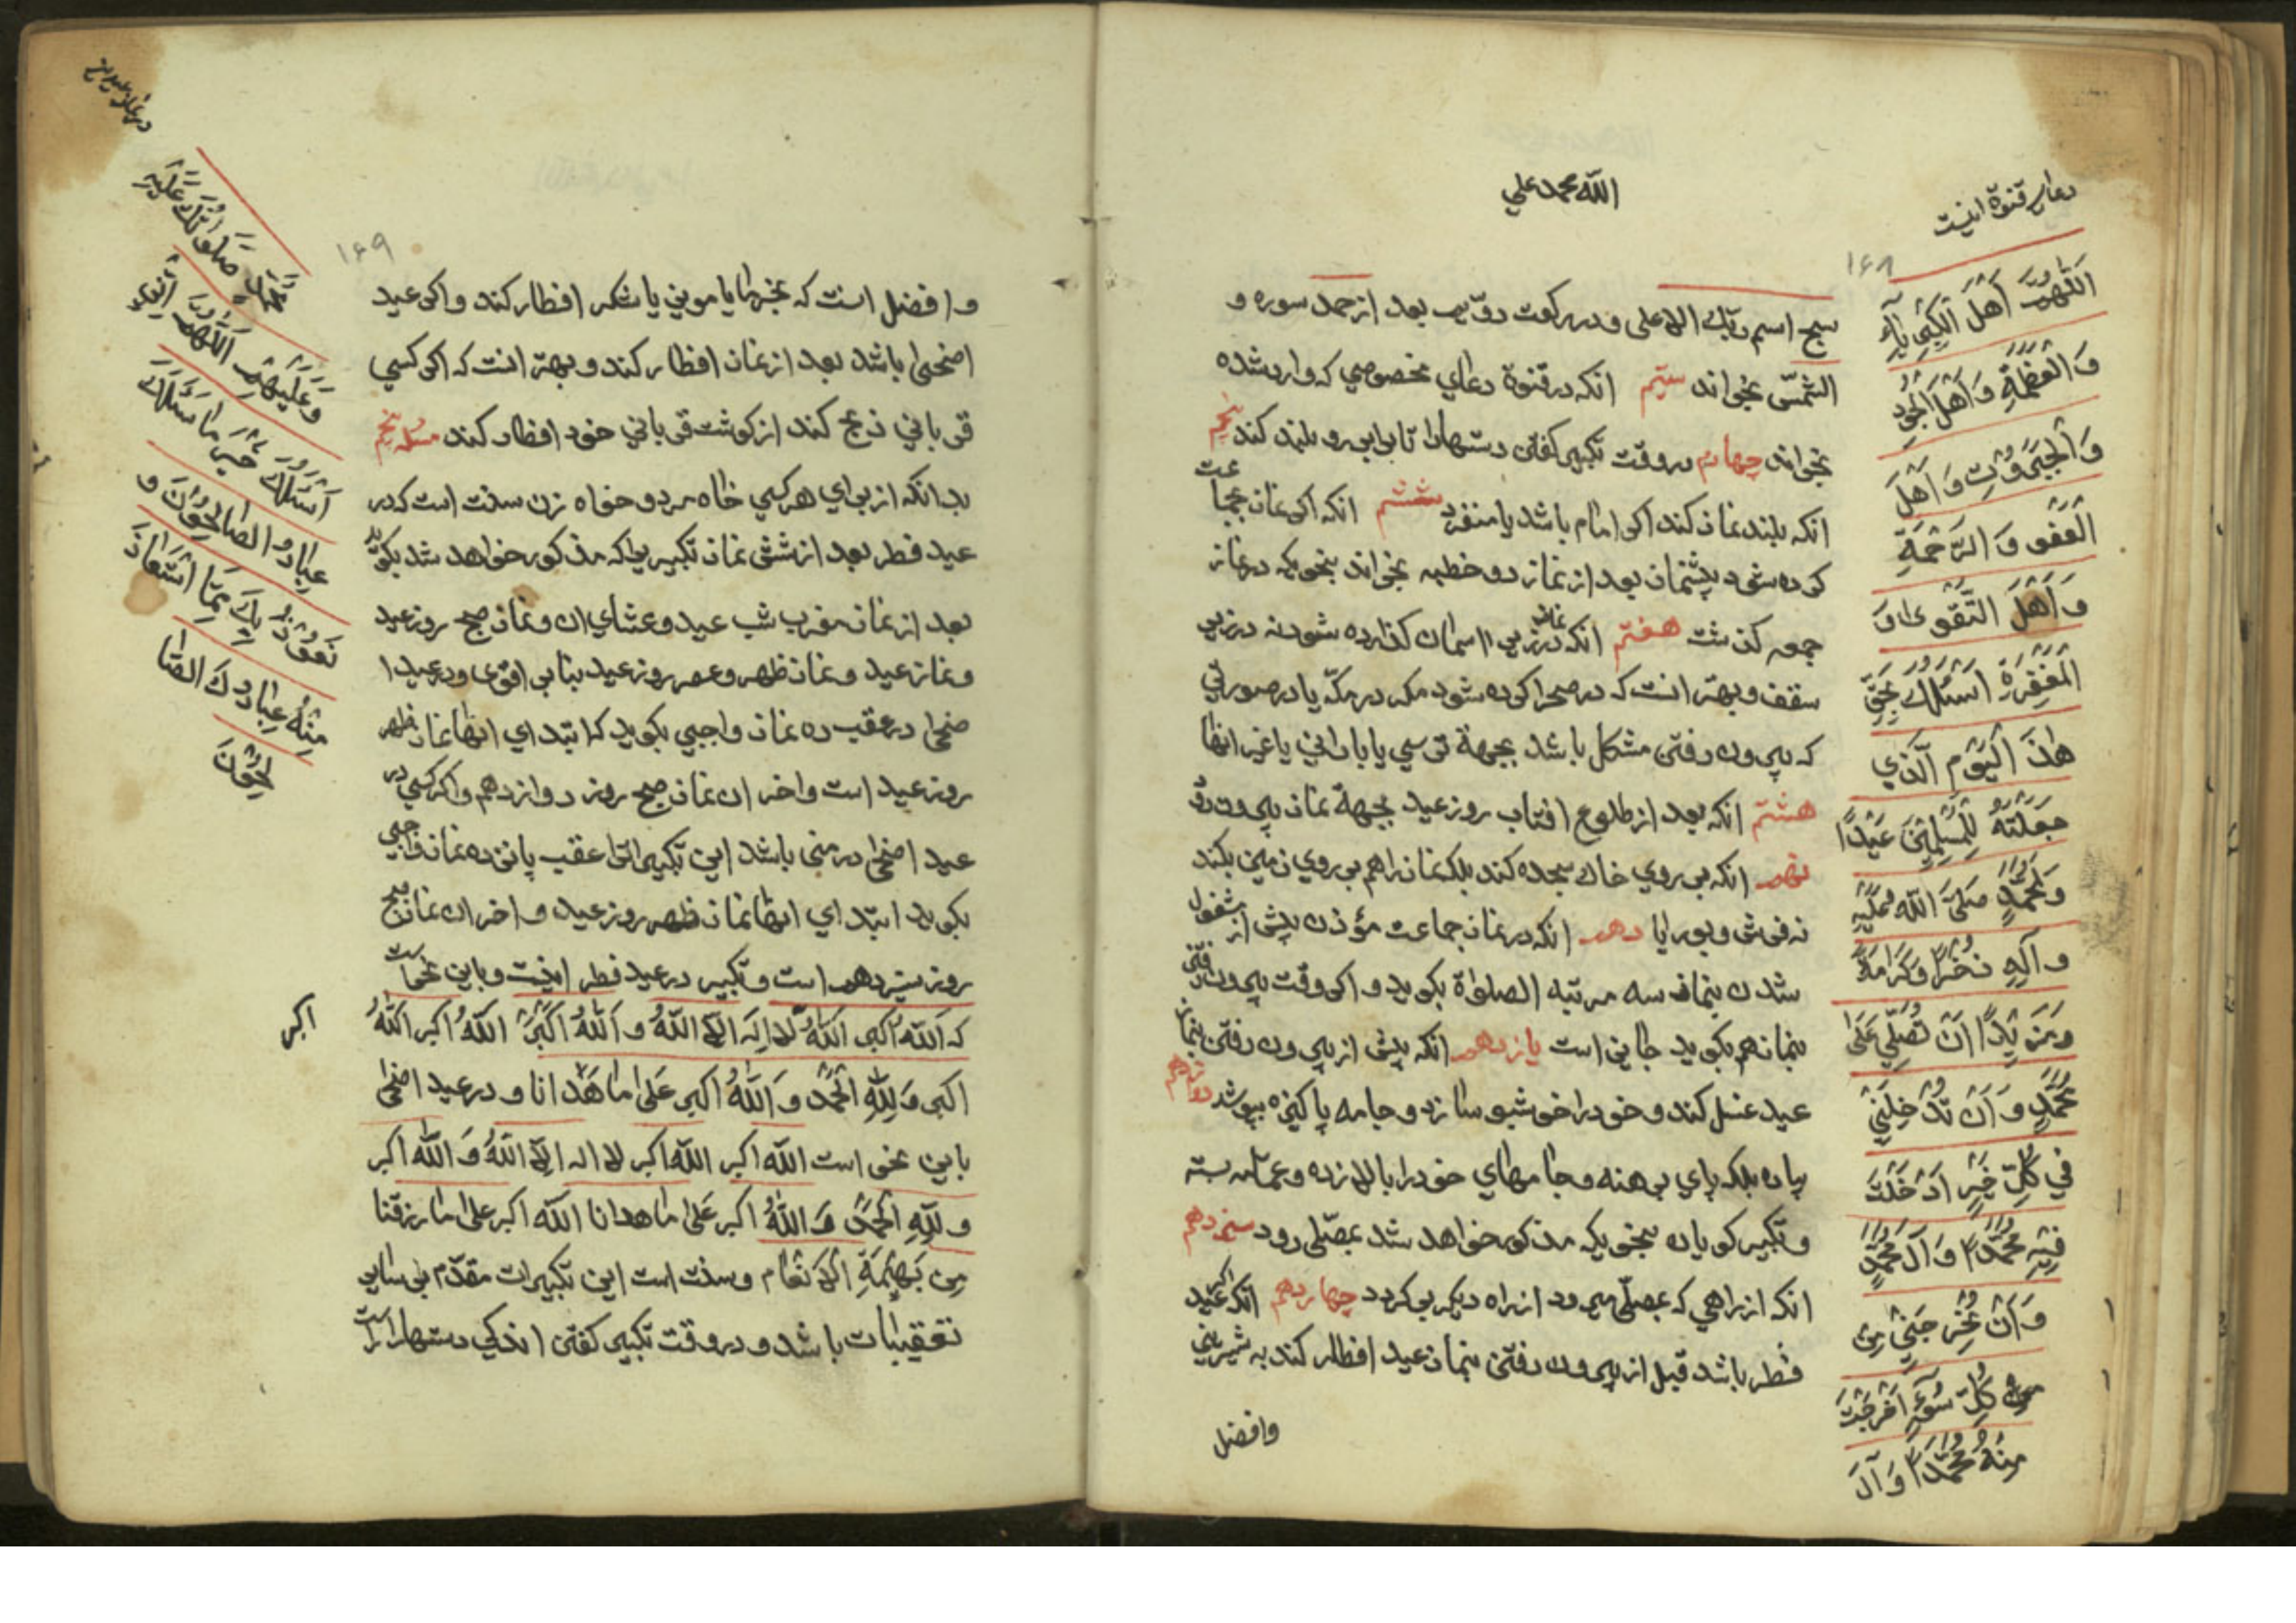 الله محمد علي
دعای قنوة اینست
۱۶۸
سبح اسم ربك الاعلی و در رکعت دوّیم بعد از حمد سوره و
الشمس بخواند سیّم انکه در قنوة دعای مخصوصی که وارد شده
بخواند چهارم در وقت تکبیر کفتن دستها را تا برابر رو بلند کند پنجم
انکه بلند نماز کند اکر امام باشد یا منفرد ششم انکه اکر نماز بجماعت
کرده شود پیشنماز بعد از نماز دو خطبه بخواند بنحویکه در نماز
جمعه کذشت هفتم انکه نماز در زیر اسمان کذارده شود نه در زیر
سقف و بهتر انست که در صحرا کرده شود مکر در مکّه یا در صورتی
که بیرون رفتن مشکل باشد بجهة ترسی یا بارانی یا غیر انها
هشتم انکه بعد از طلوع افتاب روز عید بجهة نماز بیرون رود
نهم انکه بر روی خاك سجده کند بلکه نماز را هم بر روی زمین بکند
نه فرش و بوریا دهم انکه در نماز جماعت مؤذن پیش از مشغول
شدن بنماز سه مرتبه الصلواة بکوید و اکر وقت بیرون رفتن
بنماز هم بکوید جایز است یازدهم انکه پیش از بیرون رفتن بنماز
عید غسل کند و خود را خوشبو سازد و جامه پاکیزه بپوشد دوازدهم
پیاده بلکه پای برهنه و جامهای خود را بالا زده و عمّامه بسته
و تکبیر کویان بنحویکه مذکور خواهد شد بمصلّی رود سیزدهم
انکه از راهی که بمصلّی میرود از راه دیکر بر کردد چهاردهم انکه اکر عید
فطر باشد قبل از بیرون رفتن بنماز عید افطار کند به شیرینی
وافضل
اَللّهُمَّ اَهْلَ الْكِبْرِيآءِ
وَالْعَظَمَةِ وَاَهْلَ الْجُودِ
وَالْجَبَرُوتِ وَاَهْلَ
الْعَفْوِ وَالرَّحْمَةِ
وَاَهْلَ التَّقْوی وَ
الْمَغْفِرَةِ اَسْئَلُكَ بِحَقِّ
هٰذَا الْيَوْمِ الَّذي
جَعَلْتَهُ لِلْمُسْلِمينَ عيْدًا
وَلِمُحَمَّدٍ صَلَّی اللّهُ عَلَيْهِ
وَآلِهِ ذُخْرًا وَكَرَامَةً
وَمَزيْدًا اَنْ تُصَلِّيَ عَلی
مُحَمَّدٍ وَ اَنْ تُدْخِلَنِي
في كُلِّ خَيْرٍ اَدْخَلْتَ
فِيْهِ مُحَمَّدًا وَآلَ مُحَمَّدٍ
وَاَنْ تُخْرِجَنِي مِنْ
كُلِّ سُوءٍ اَخْرَجْتَ
مِنْهُ مُحَمَّدًا وَآلَ
۱۶۹
و افضل انست که بخرما یا مویز یا شکر افطار کند و اکر عید
اضحی باشد بعد از نماز افطار کند و بهتر انست که اکر کسی
قربانی ذبح کند از کوشت قربانی خود افطار کند مسئله پنجم
بدانکه از برای هر کسی خواه مرد و خواه زن سنت است که در
عید فطر بعد از شش نماز تکبیریرا که مذکور خواهد شد بکوید
بعد از نماز مغرب شب عید و عشای ان و نماز صبح روز عید
و نماز عید و نماز ظهر و عصر روز عید بنا بر اقوی و در عید ا
ضحی در عقب ده نماز واجبی بکوید که ابتدای انها نماز ظهر
روز عید است و اخر ان نماز صبح روز دوازدهم و اکر کسی در
عید اضحی در منی باشد این تکبیراترا عقب پانزده نماز واجبی
بکوید ابتدای انها نماز ظهر روز عید و اخر ان نماز صبح
روز سیزدهم است و تکبیر در عید فطر اینست و باین نحو است
که اَللّهُ اَکبر اَللّهُ لا اِلهَ اِلاَّ اللّهُ وَ اَللّهُ اَکْبَرُ اَللّهُ اکبر اَللّهُ
اکبر
اکبر وَلِلّهِ الْحَمْدُ وَ اَللّهُ اکبر عَلی ما هَدٰانا و در عید اضحی
باین نحو است اللّه اکبر اللّه اکبر لا اله اِلاَّ اللّهُ وَ اللّه اکبر
و لِلّهِ الْحَمْدُ وَ اللّهُ اکبر عَلی ما هدانا اللّه اکبر علی ما رزقنا
مِن بَهيْمَةِ الاَنْعام و سنت است این تکبیرات مقدّم بر سایر
تعقیبات باشد و در وقت تکبیر کفتن اندکی دستها را
مُحَمَّدٍ صَلَوٰاتُكَ عَلَيْهِ
وَعَلَيْهِمْ اَللّهُمَّ اِنّي
اَسْئَلُكَ خَيْرَ ما سَئَلَكَ
عِبادُكَ الصّالِحُونَ وَ
نَعُوذُ بِكَ مِمَّا اسْتَعاذَ
مِنْهُ عِبادُكَ الصّا
لِحُونَ